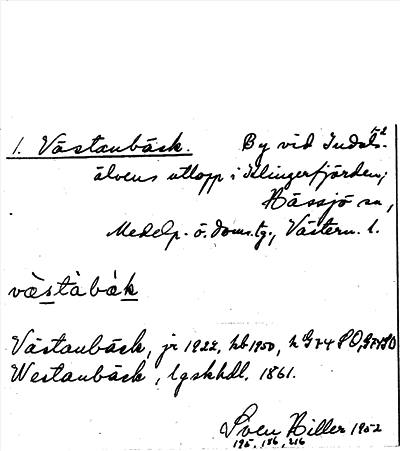 1. Västanbäck. By vid Indals-
älvens utlopp i Klingerfjärden,
Hässjö sn,
Medelp. ö. doms.tg., Västern. l.
vä̀stàbák
Västanbäck, jr 1922, hb 1950, h G+4 PO,
Westanbäck, lgskhdl. 1861.
Sven Hiller 1952
195, 186, 216